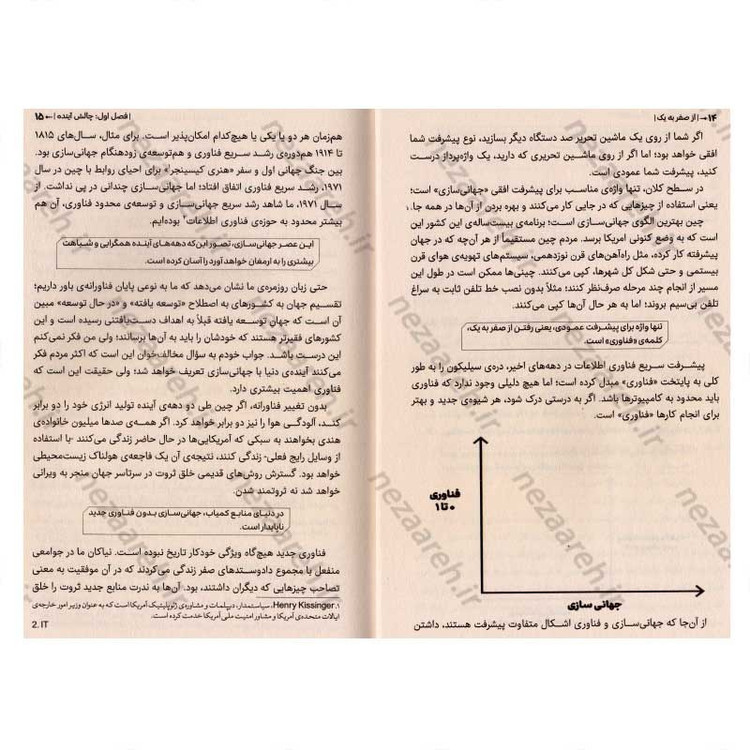 ۱۴ | از صفر به یک |
اگر شما از روی یک ماشین تحریر صد دستگاه دیگر بسازید، نوع پیشرفت شما
افقی خواهد بود؛ اما اگر از روی ماشین تحریری که دارید، یک واژه‌پرداز درست
کنید، پیشرفت شما عمودی است.
در سطح کلان، تنها واژه‌ی مناسب برای پیشرفت افقی «جهانی‌سازی» است؛
یعنی استفاده از چیزهایی که در جایی کار می‌کنند و بهره بردن از آن‌ها در همه جا.
چین بهترین الگوی جهانی‌سازی است؛ برنامه‌ی بیست‌ساله‌ی این کشور این
است که به وضع کنونی امریکا برسد. مردم چین مستقیماً از هر آن‌چه که در جهان
پیشرفته کار کرده، مثل راه‌آهن‌های قرن نوزدهمی، سیستم‌های تهویه‌ی هوای قرن
بیستمی و حتی شکل کل شهرها، کپی می‌کنند. چینی‌ها ممکن است در طول این
مسیر از انجام چند مرحله صرف‌نظر کنند؛ مثلاً بدون نصب خط تلفن ثابت به سراغ
تلفن بی‌سیم بروند؛ اما به هر حال آن‌ها کپی می‌کنند.
تنها واژه برای پیشرفت عمودی، یعنی رفتن از صفر به یک،
کلمه‌ی «فناوری» است.
پیشرفت سریع فناوری اطلاعات در دهه‌های اخیر، دره‌ی سیلیکون را به طور
کلی به پایتخت «فناوری» مبدل کرده است؛ اما هیچ دلیلی وجود ندارد که فناوری
باید محدود به کامپیوترها باشد. اگر به درستی درک شود، هر شیوه‌ی جدید و بهتر
برای انجام کارها «فناوری» است.
فناوری
۰ تا ۱
جهانی سازی
از آن‌جا که جهانی‌سازی و فناوری اشکال متفاوت پیشرفت هستند، داشتن
| فصل اول: چالش آینده | ۱۵
هم‌زمان هر دو یا یکی یا هیچ‌کدام امکان‌پذیر است. برای مثال، سال‌های ۱۸۱۵
تا ۱۹۱۴ هم‌دوره‌ی رشد سریع فناوری و هم‌توسعه‌ی زودهنگام جهانی‌سازی بود.
بین جنگ جهانی اول و سفر «هنری کیسینجر» برای احیای روابط با چین در سال
۱۹۷۱، رشد سریع فناوری اتفاق افتاد؛ اما جهانی‌سازی چندانی در پی نداشت. از
سال ۱۹۷۱، ما شاهد رشد سریع جهانی‌سازی و توسعه‌ی محدود فناوری، آن هم
بیشتر محدود به حوزه‌ی فناوری اطلاعات۲ بوده‌ایم.
این عصر جهانی‌سازی، تصور این‌که دهه‌های آینده همگرایی و شباهت
بیشتری را به ارمغان خواهد آورد را آسان کرده است.
حتی زبان روزمره‌ی ما نشان می‌دهد که ما به نوعی پایان فناورانه‌ی باور داریم؛
تقسیم جهان به کشورهای به اصطلاح «توسعه یافته» و «در حال توسعه» مبین
آن است که جهان توسعه یافته قبلاً به اهداف دست‌یافتنی رسیده است و این
کشورهای فقیرتر هستند که خودشان را باید به آن‌ها برسانند؛ ولی من فکر نمی‌کنم
این درست باشد. جواب خودم به سؤال مخالف‌خوان این است که اکثر مردم فکر
می‌کنند آینده‌ی دنیا با جهانی‌سازی تعریف خواهد شد؛ ولی حقیقت این است که
فناوری اهمیت بیشتری دارد.
بدون تغییر فناورانه، اگر چین طی دو دهه‌ی آینده تولید انرژی خود را دو برابر
کند، آلودگی هوا را نیز دو برابر خواهد کرد. اگر همه‌ی صدها میلیون خانواده‌ی
هندی بخواهند به سبکی که آمریکایی‌ها در حال حاضر زندگی می‌کنند -با استفاده
از وسایل رایج فعلی- زندگی کنند، نتیجه‌ی آن یک فاجعه‌ی هولناک زیست‌محیطی
خواهد بود. گسترش روش‌های قدیمی خلق ثروت در سرتاسر جهان منجر به ویرانی
خواهد شد نه ثروتمند شدن.
در دنیای منابع کمیاب، جهانی‌سازی بدون فناوری جدید
ناپایدار است.
فناوری جدید هیچ‌گاه ویژگی خودکار تاریخ نبوده است. نیاکان ما در جوامعی
منفعل با مجموع دادوستدهای صفر زندگی می‌کردند که در آن موفقیت به معنی
تصاحب چیزهایی که دیگران داشتند، بود. آن‌ها به ندرت منابع جدید ثروت را خلق
۱. Henry Kissinger، سیاستمدار، دیپلمات و مشاوره‌ی ژئوپلیتیک آمریکا است که به عنوان وزیر امور خارجه‌ی
ایالات متحده‌ی آمریکا و مشاور امنیت ملی آمریکا خدمت کرده است.
2. IT
nezaareh.ir